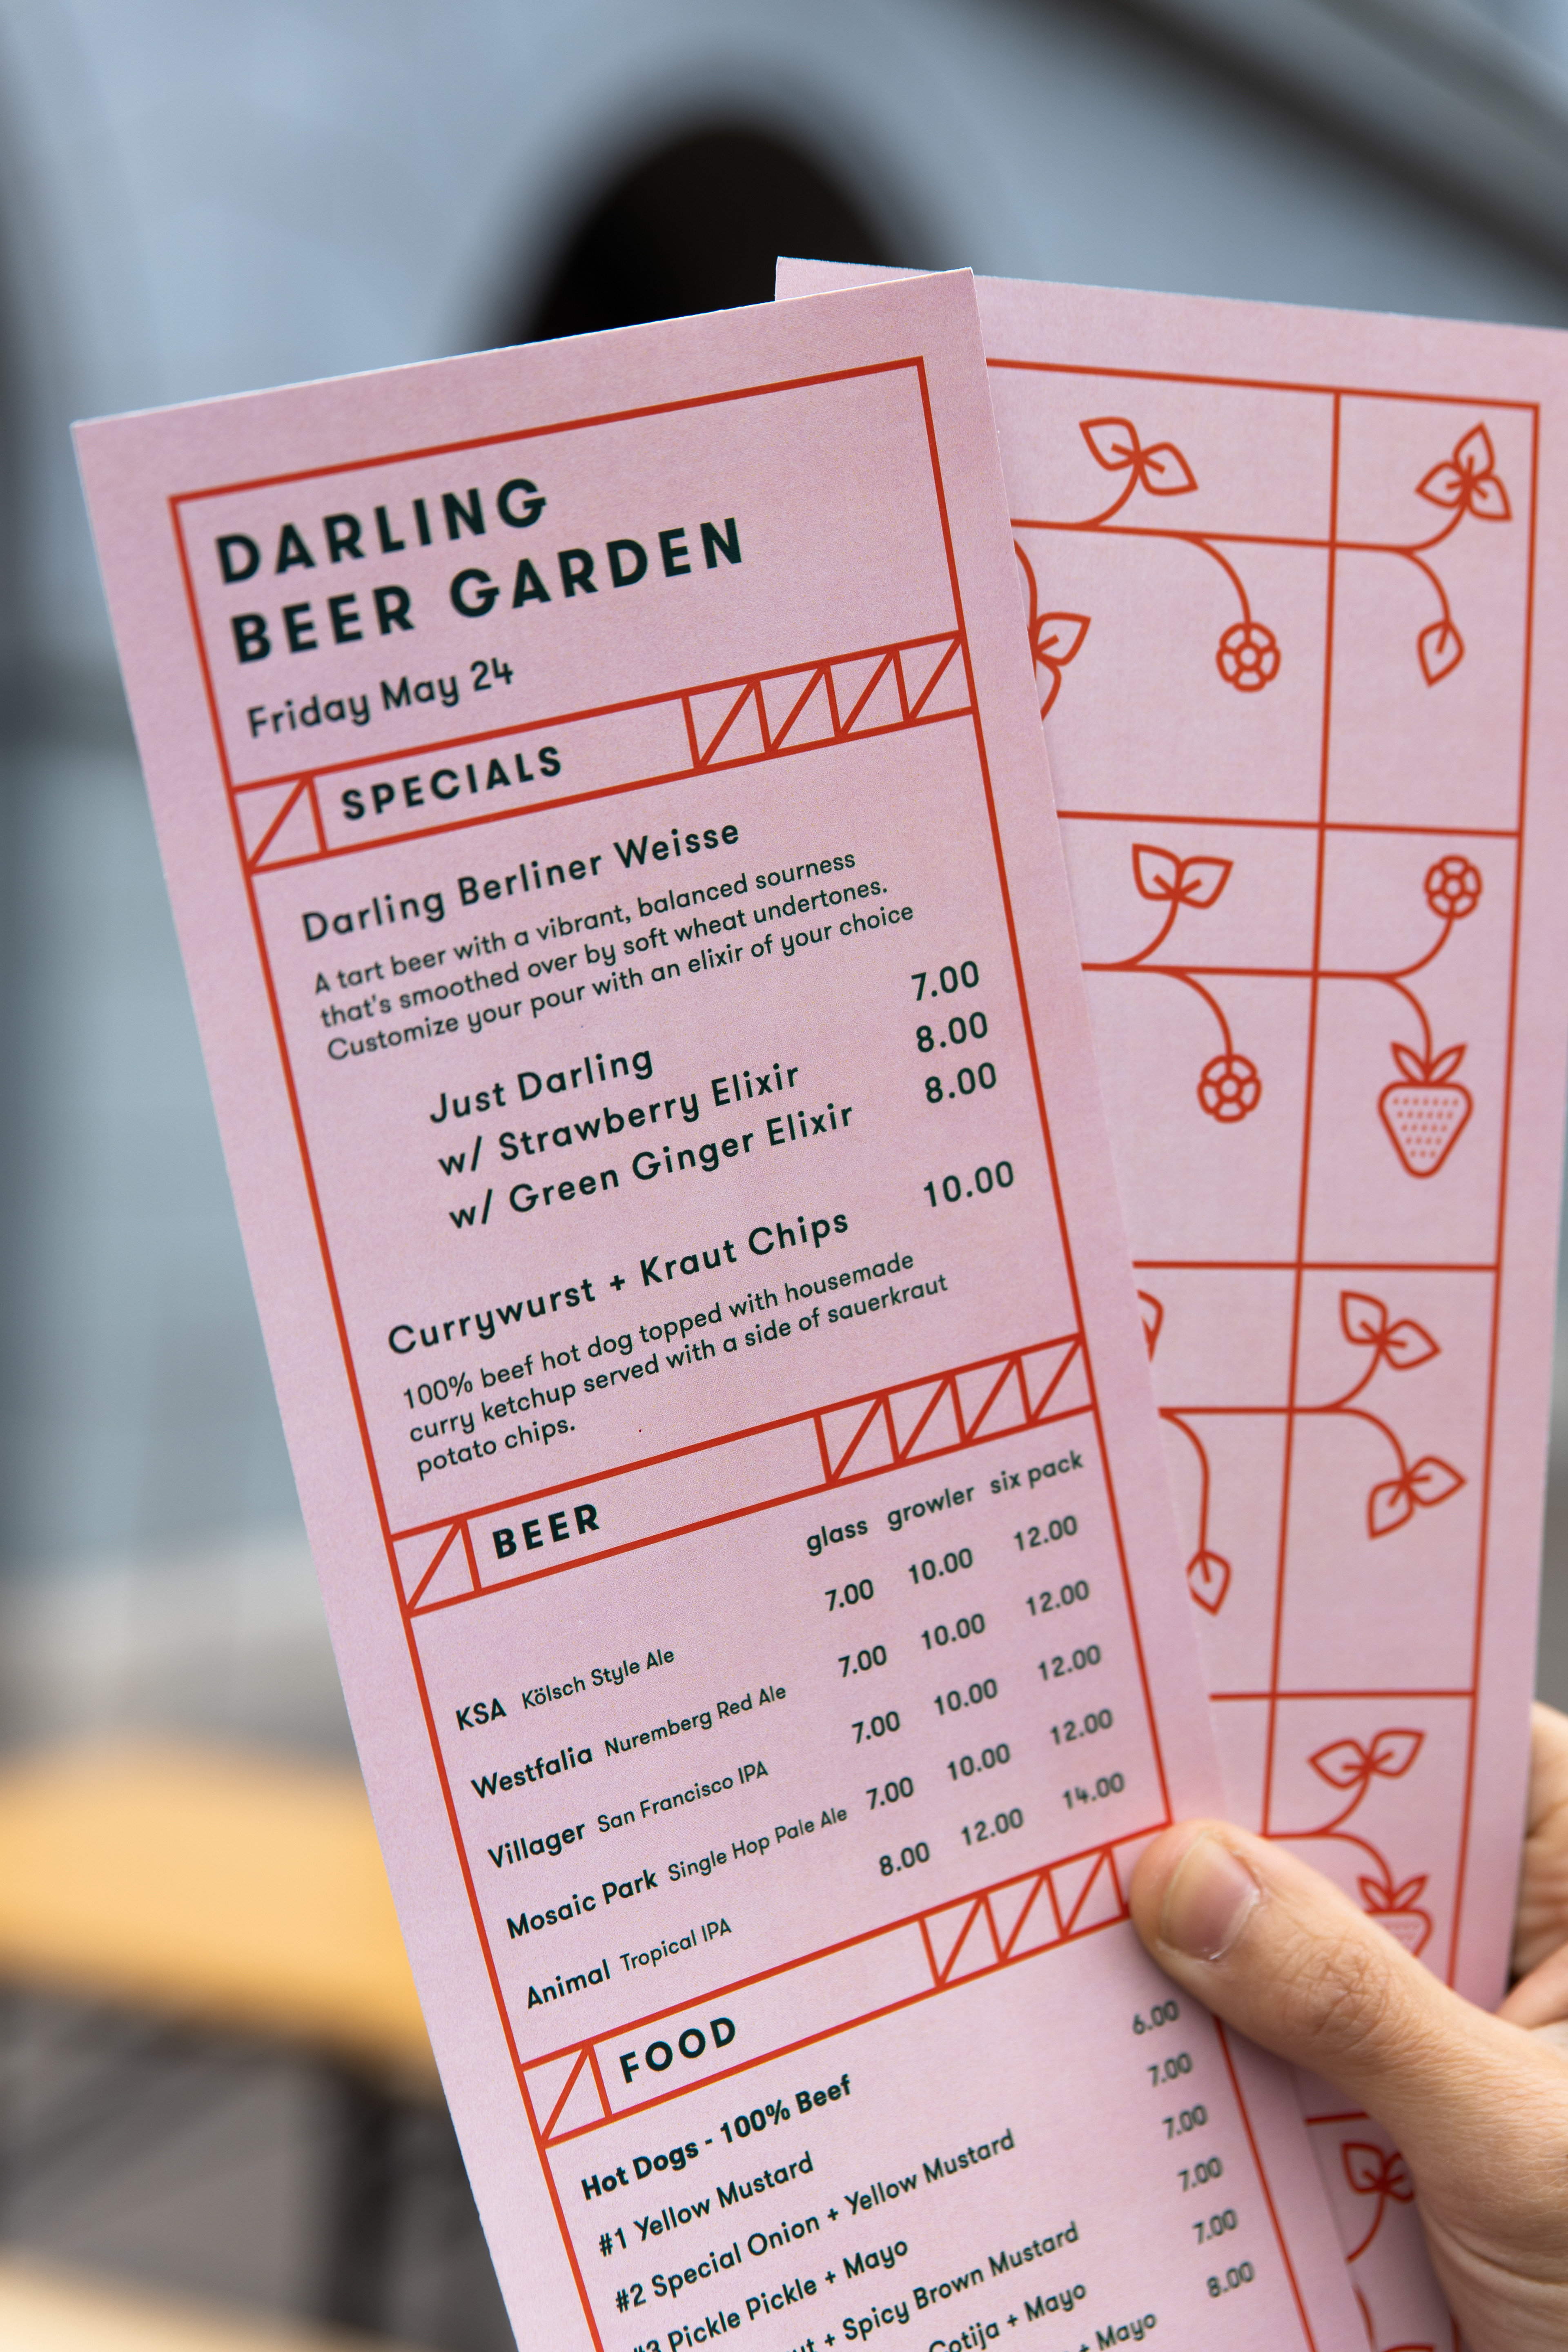 DARLING
BEER GARDEN
Friday May 24
SPECIALS
Darling Berliner Weisse
A tart beer with a vibrant, balanced sourness
that's smoothed over by soft wheat undertones.
Customize your pour with an elixir of your choice
Just Darling 7.00
w/ Strawberry Elixir 8.00
w/ Green Ginger Elixir 8.00
Currywurst + Kraut Chips 10.00
100% beef hot dog topped with housemade
curry ketchup served with a side of sauerkraut
potato chips.
BEER
glass growler six pack
KSA Kölsch Style Ale 7.00 10.00 12.00
Westfalia Nuremberg Red Ale 7.00 10.00 12.00
Villager San Francisco IPA 7.00 10.00 12.00
Mosaic Park Single Hop Pale Ale 7.00 10.00 12.00
Animal Tropical IPA 8.00 12.00 14.00
FOOD
Hot Dogs - 100% Beef
#1 Yellow Mustard 6.00
#2 Special Onion + Yellow Mustard 7.00
#3 Pickle Pickle + Mayo 7.00
+ Spicy Brown Mustard 7.00
Cotija + Mayo 7.00
+ Mayo 8.00